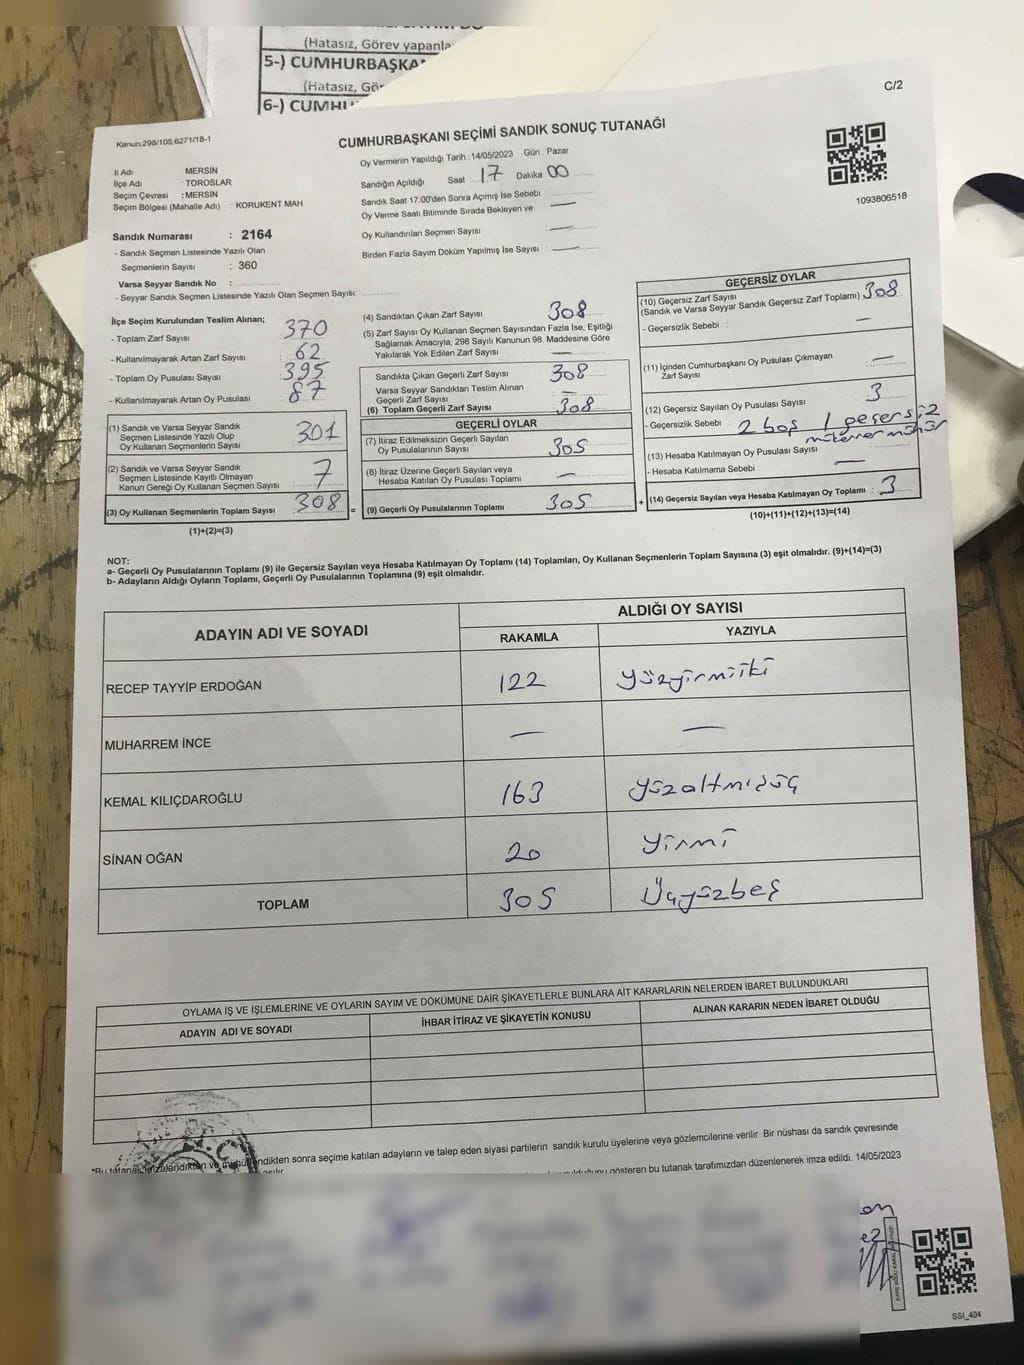 (Hatasız, Görev yapanla
5-) CUMHURBAŞKA
(Hatasız, Gö
6-) CUMHU
C/2
Kanun:298/105;6271/18-1
CUMHURBAŞKANI SEÇİMİ SANDIK SONUÇ TUTANAĞI
Oy Vermenin Yapıldığı Tarih : 14/05/2023 Gün : Pazar
İl Adı : MERSİN
İlçe Adı : TOROSLAR
Seçim Çevresi : MERSİN
Seçim Bölgesi (Mahalle Adı) : KORUKENT MAH
Sandığın Açıldığı Saat : 17 Dakika 00
Sandık Saat 17:00'den Sonra Açımış İse Sebebi : —
Oy Verme Saati Bitiminde Sırada Bekleyen ve
Oy Kullandırılan Seçmen Sayısı : —
Birden Fazla Sayım Döküm Yapılmış İse Sayısı : —
1093806518
Sandık Numarası : 2164
- Sandık Seçmen Listesinde Yazılı Olan
Seçmenlerin Sayısı : 360
Varsa Seyyar Sandık No :
- Seyyar Sandık Seçmen Listesinde Yazılı Olan Seçmen Sayısı:
İlçe Seçim Kurulundan Teslim Alınan;
- Toplam Zarf Sayısı : 370
- Kullanılmayarak Artan Zarf Sayısı : 62
- Toplam Oy Pusulası Sayısı : 395
- Kullanılmayarak Artan Oy Pusulası : 87
(1) Sandık ve Varsa Seyyar Sandık
Seçmen Listesinde Yazılı Olup
Oy Kullanan Seçmenlerin Sayısı 301
(2) Sandık ve Varsa Seyyar Sandık
Seçmen Listesinde Kayıtlı Olmayan
Kanun Gereği Oy Kullanan Seçmen Sayısı : 7
(3) Oy Kullanan Seçmenlerin Toplam Sayısı : 308
(1)+(2)=(3)
(4) Sandıktan Çıkan Zarf Sayısı : 308
(5) Zarf Sayısı Oy Kullanan Seçmen Sayısından Fazla İse, Eşitliği
Sağlamak Amacıyla; 298 Sayılı Kanunun 98. Maddesine Göre
Yakılarak Yok Edilen Zarf Sayısı : —
Sandıkta Çıkan Geçerli Zarf Sayısı : 308
Varsa Seyyar Sandıktan Teslim Alınan
Geçerli Zarf Sayısı : —
(6) Toplam Geçerli Zarf Sayısı : 308
GEÇERLİ OYLAR
(7) İtiraz Edilmeksizin Geçerli Sayılan
Oy Pusulalarının Sayısı : 305
(8) İtiraz Üzerine Geçerli Sayılan veya
Hesaba Katılan Oy Pusulası Toplamı : —
= (9) Geçerli Oy Pusulalarının Toplamı : 305
GEÇERSİZ OYLAR
(10) Geçersiz Zarf Sayısı
(Sandık ve Varsa Seyyar Sandık Geçersiz Zarf Toplamı) 308
- Geçersizlik Sebebi : —
(11) İçinden Cumhurbaşkanı Oy Pusulası Çıkmayan
Zarf Sayısı : —
(12) Geçersiz Sayılan Oy Pusulası Sayısı : 3
- Geçersizlik Sebebi : 2 boş 1 geçersiz
mükerrer mühür
(13) Hesaba Katılmayan Oy Pusulası Sayısı : —
- Hesaba Katılmama Sebebi :
+ (14) Geçersiz Sayılan veya Hesaba Katılmayan Oy Toplamı : 3
(10)+(11)+(12)+(13)=(14)
NOT:
a- Geçerli Oy Pusulalarının Toplamı (9) ile Geçersiz Sayılan veya Hesaba Katılmayan Oy Toplamı (14) Toplamları, Oy Kullanan Seçmenlerin Toplam Sayısına (3) eşit olmalıdır. (9)+(14)=(3)
b- Adayların Aldığı Oyların Toplamı, Geçerli Oy Pusulalarının Toplamına (9) eşit olmalıdır.
ADAYIN ADI VE SOYADI ALDIĞI OY SAYISI
RAKAMLA YAZIYLA
RECEP TAYYİP ERDOĞAN 122 yüzyirmiiki
MUHARREM İNCE — —
KEMAL KILIÇDAROĞLU 163 yüzaltmışüç
SİNAN OĞAN 20 yirmi
TOPLAM 305 Üçyüzbeş
OYLAMA İŞ VE İŞLEMLERİNE VE OYLARIN SAYIM VE DÖKÜMÜNE DAİR ŞİKAYETLERLE BUNLARA AİT KARARLARIN NELERDEN İBARET BULUNDUKLARI
ADAYIN ADI VE SOYADI İHBAR İTİRAZ VE ŞİKAYETİN KONUSU ALINAN KARARIN NEDEN İBARET OLDUĞU
*Bu tutanak imzalandıktan ve mühürlendikten sonra seçime katılan adayların ve talep eden siyasi partilerin sandık kurulu üyelerine veya gözlemcilerine verilir Bir nüshası da sandık çevresinde
gösteren bu tutanak tarafımızdan düzenlenerek imza edildi. 14/05/2023
SSI_404